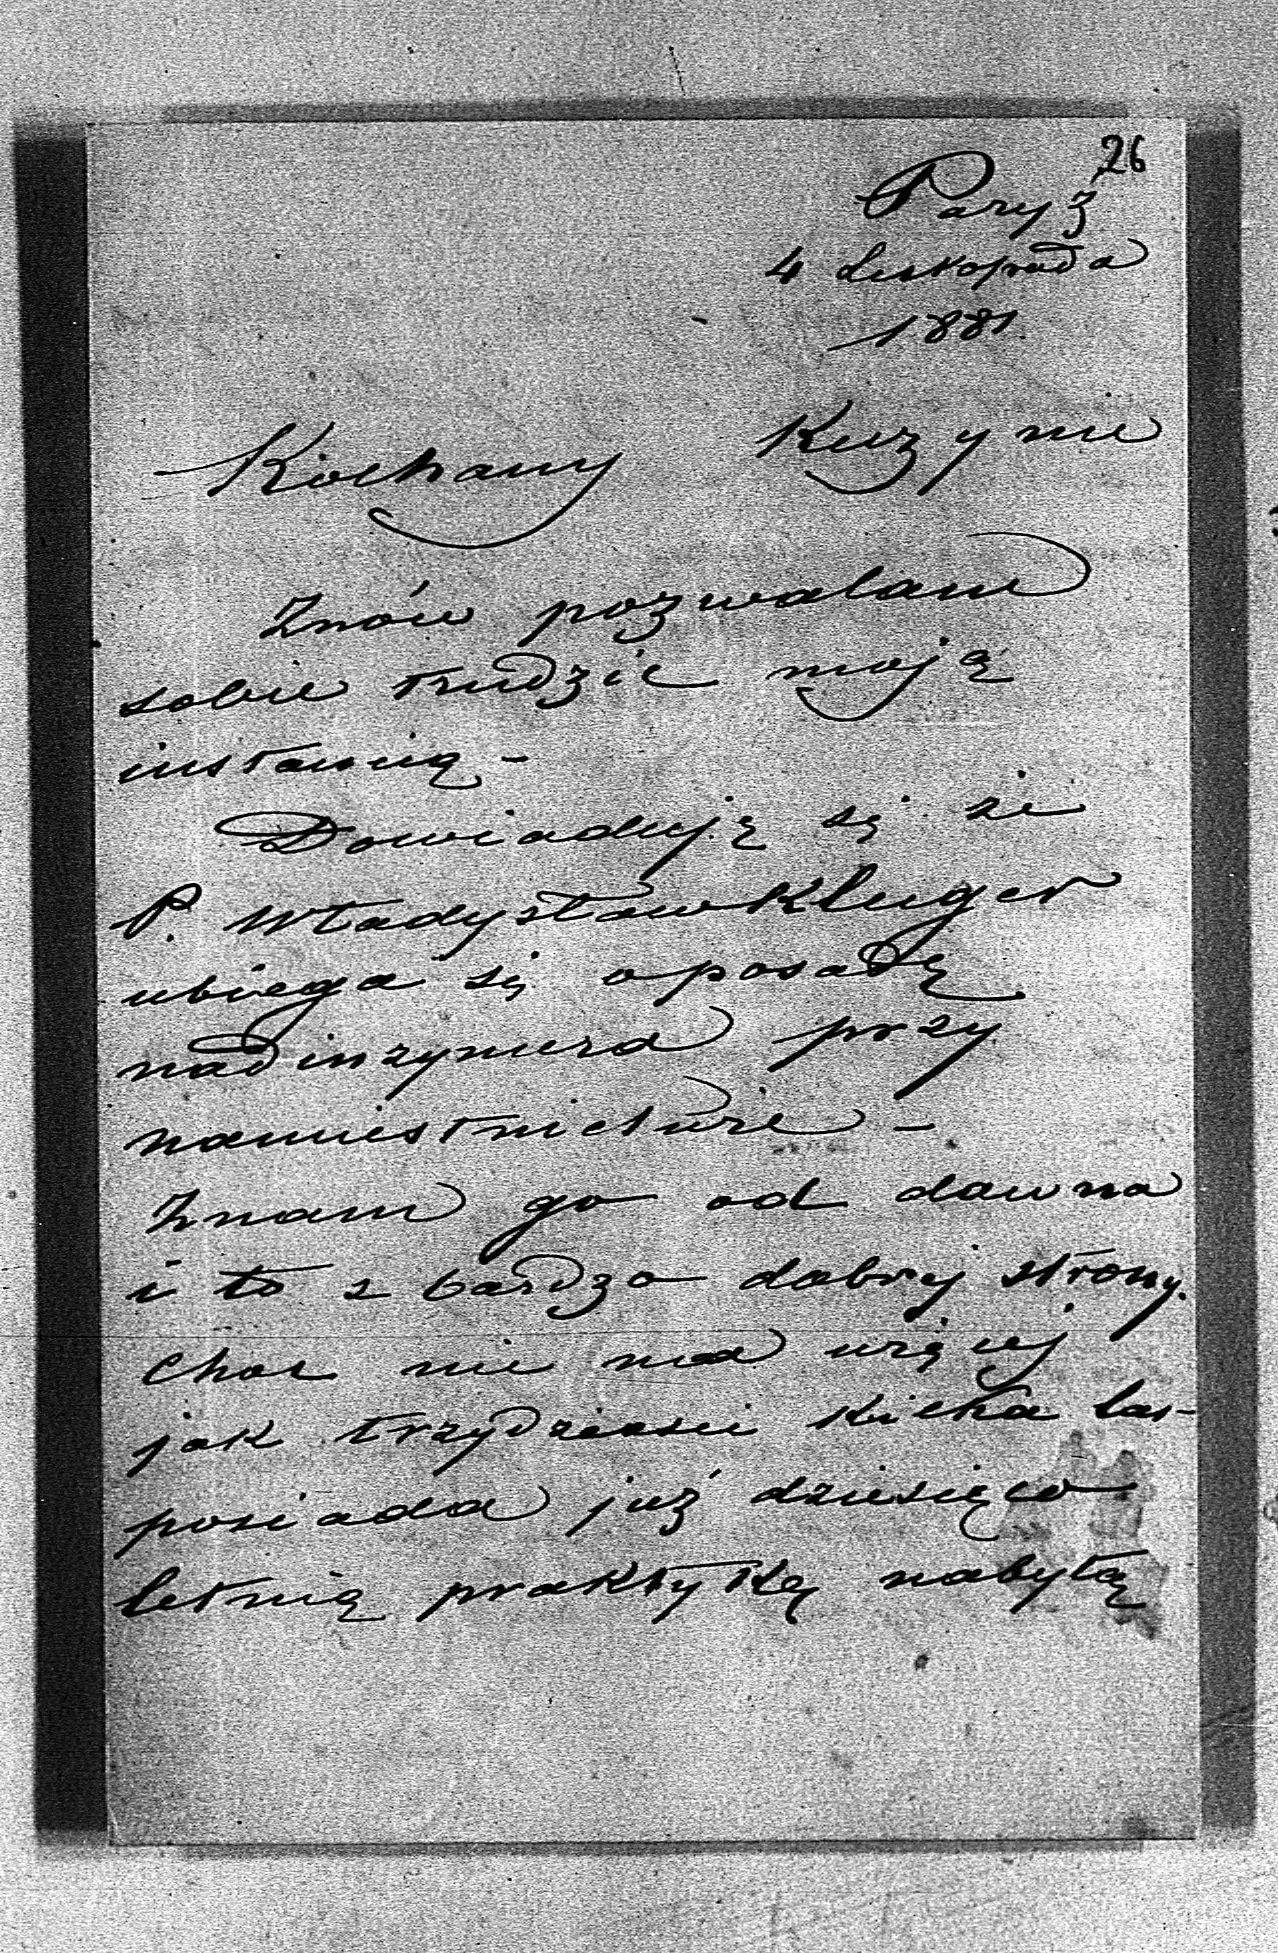 26
Paryż
4 Listopada
1881.
Kochany Kuzynie
Znów pozwalam
sobie trudzić moją
instancią -
Dowiaduję się że
P. Władysław Kluger
ubiega się o posadę
nadinzyniera przy
namiestnictwie -
Znam go od dawna
i to z bardzo dobrej strony.
choc nie ma więcej
jak trzydziesci kilka lat -
posiada już dziesięcio
letnią praktykę nabytą